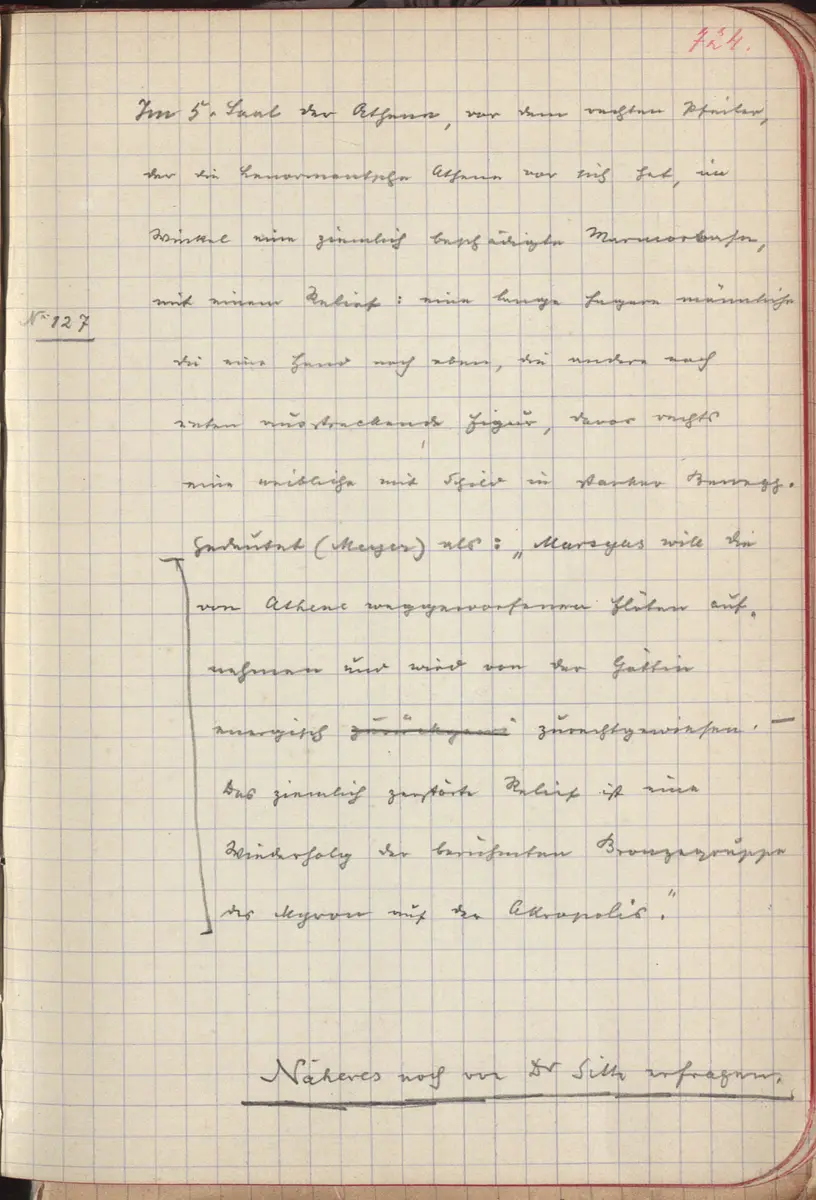 724.
Im 5. Saal der Athena, vor dem rechten Pfeiler,
der die Lenormantsche Athena vor sich hat, im
Winkel eine ziemlich beschädigte Marmorbase,
mit einem Relief: eine lange hagere männliche
No 127
die eine Hand nach oben, die andere nach
unten ausstreckende Figur, davor rechts
eine weibliche mit Schild in starker Bewegg.
Gedeutet (Meyer) als: „Marsyas will die
von Athene weggeworfenen Flöten auf-
nehmen und wird von der Göttin
energisch zurechtgewiesen. —
Das ziemlich zerstörte Relief ist eine
Wiederholg der berühmten Bronzegruppe
des Myron auf der Akropolis."
Näheres noch von Dr erfragen.